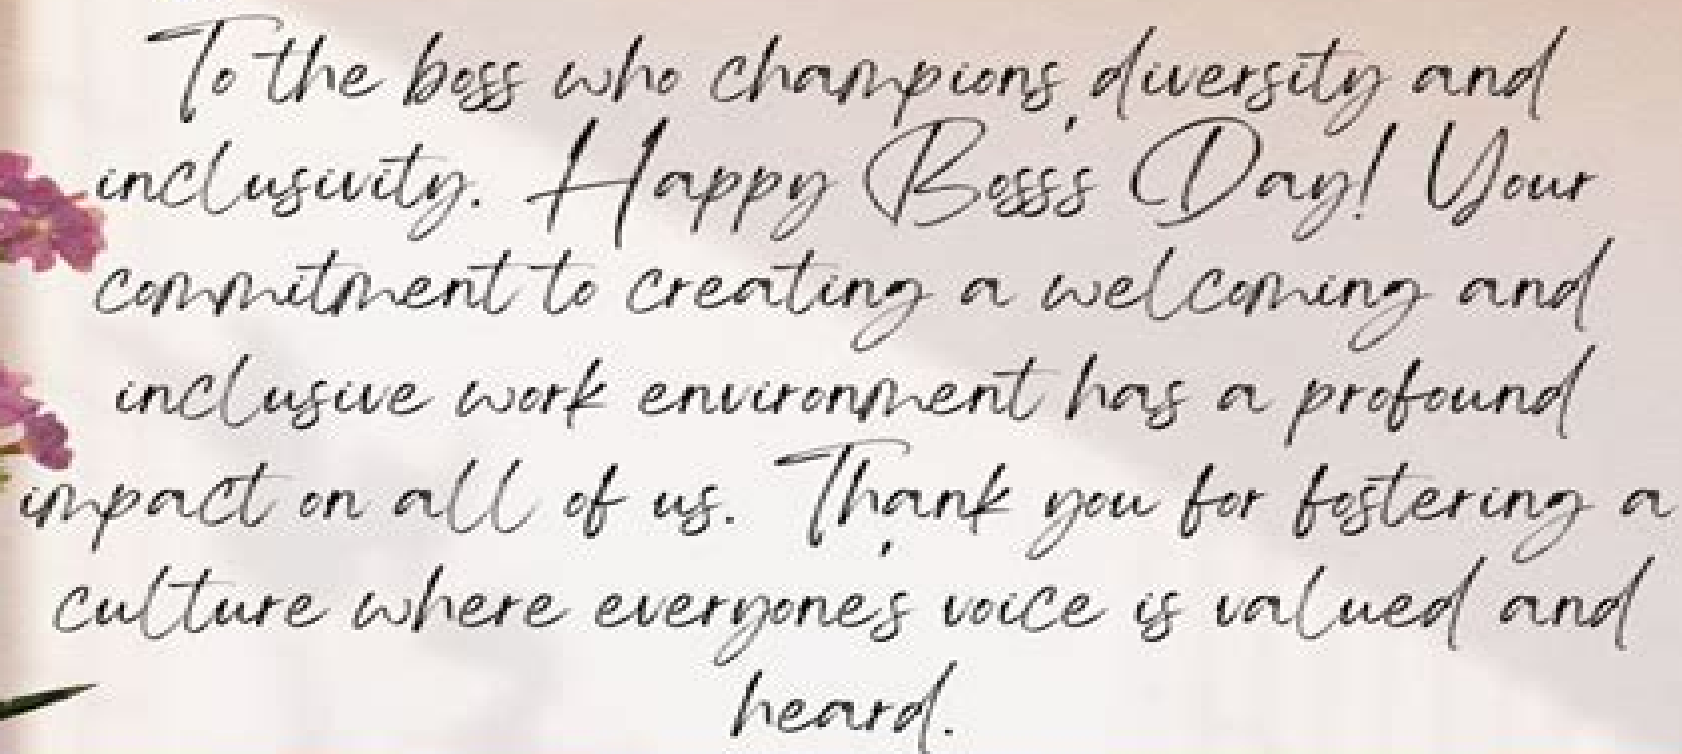 To the boss who champions diversity and
inclusivity. Happy Boss's Day! Your
commitment to creating a welcoming and
inclusive work environment has a profound
impact on all of us. Thank you for fostering a
culture where everyone's voice is valued and
heard.